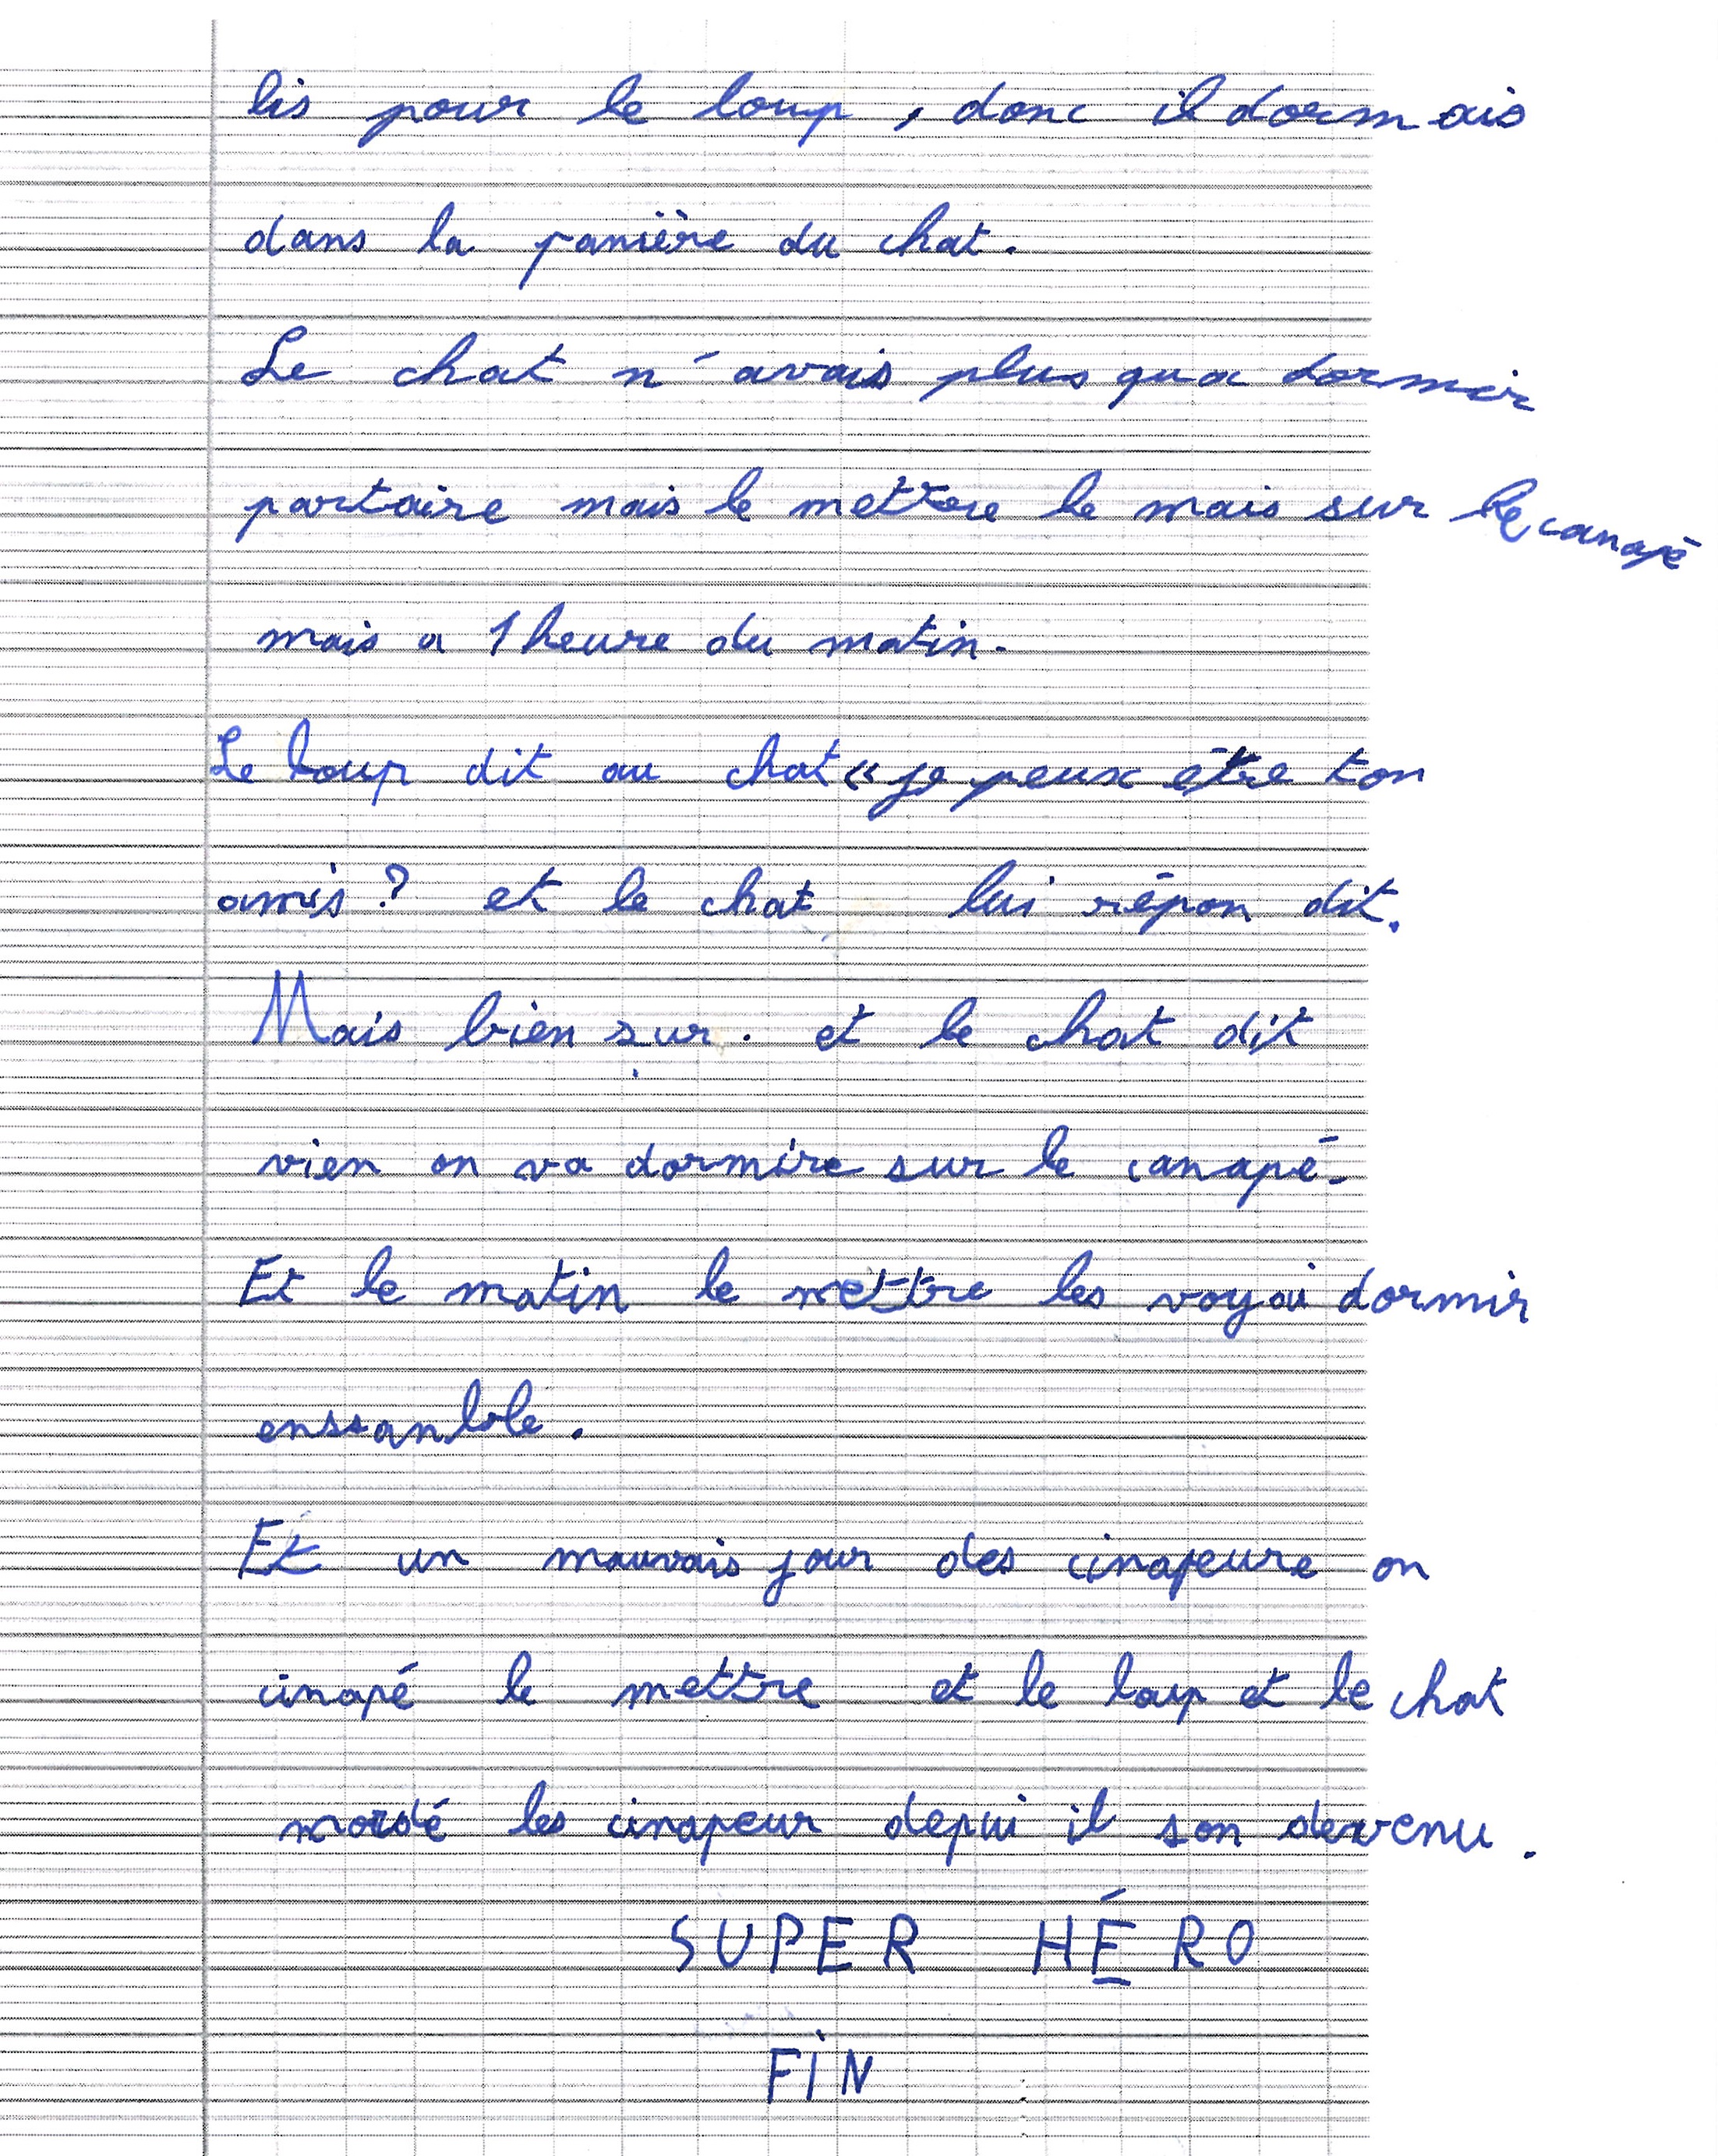 lis pour le loup, donc il dormais
dans la panière du chat.
Le chat n'avais plus qu a dormir
partaire mais le mettre le mais sur le canapé
mais a 1 heure du matin.
Le loup dit au chat « je peux être ton
amis ? et le chat lui répon dit.
Mais bien sur. et le chat dit
vien on va dormire sur le canapé.
Et le matin le mettre les voyai dormir
enssanble.
Et un mauvais jour des cinapeure on
cinapé le mettre et le loup et le chat
mordé les cinapeur depui il son devenu.
SUPER HÉRO
FIN